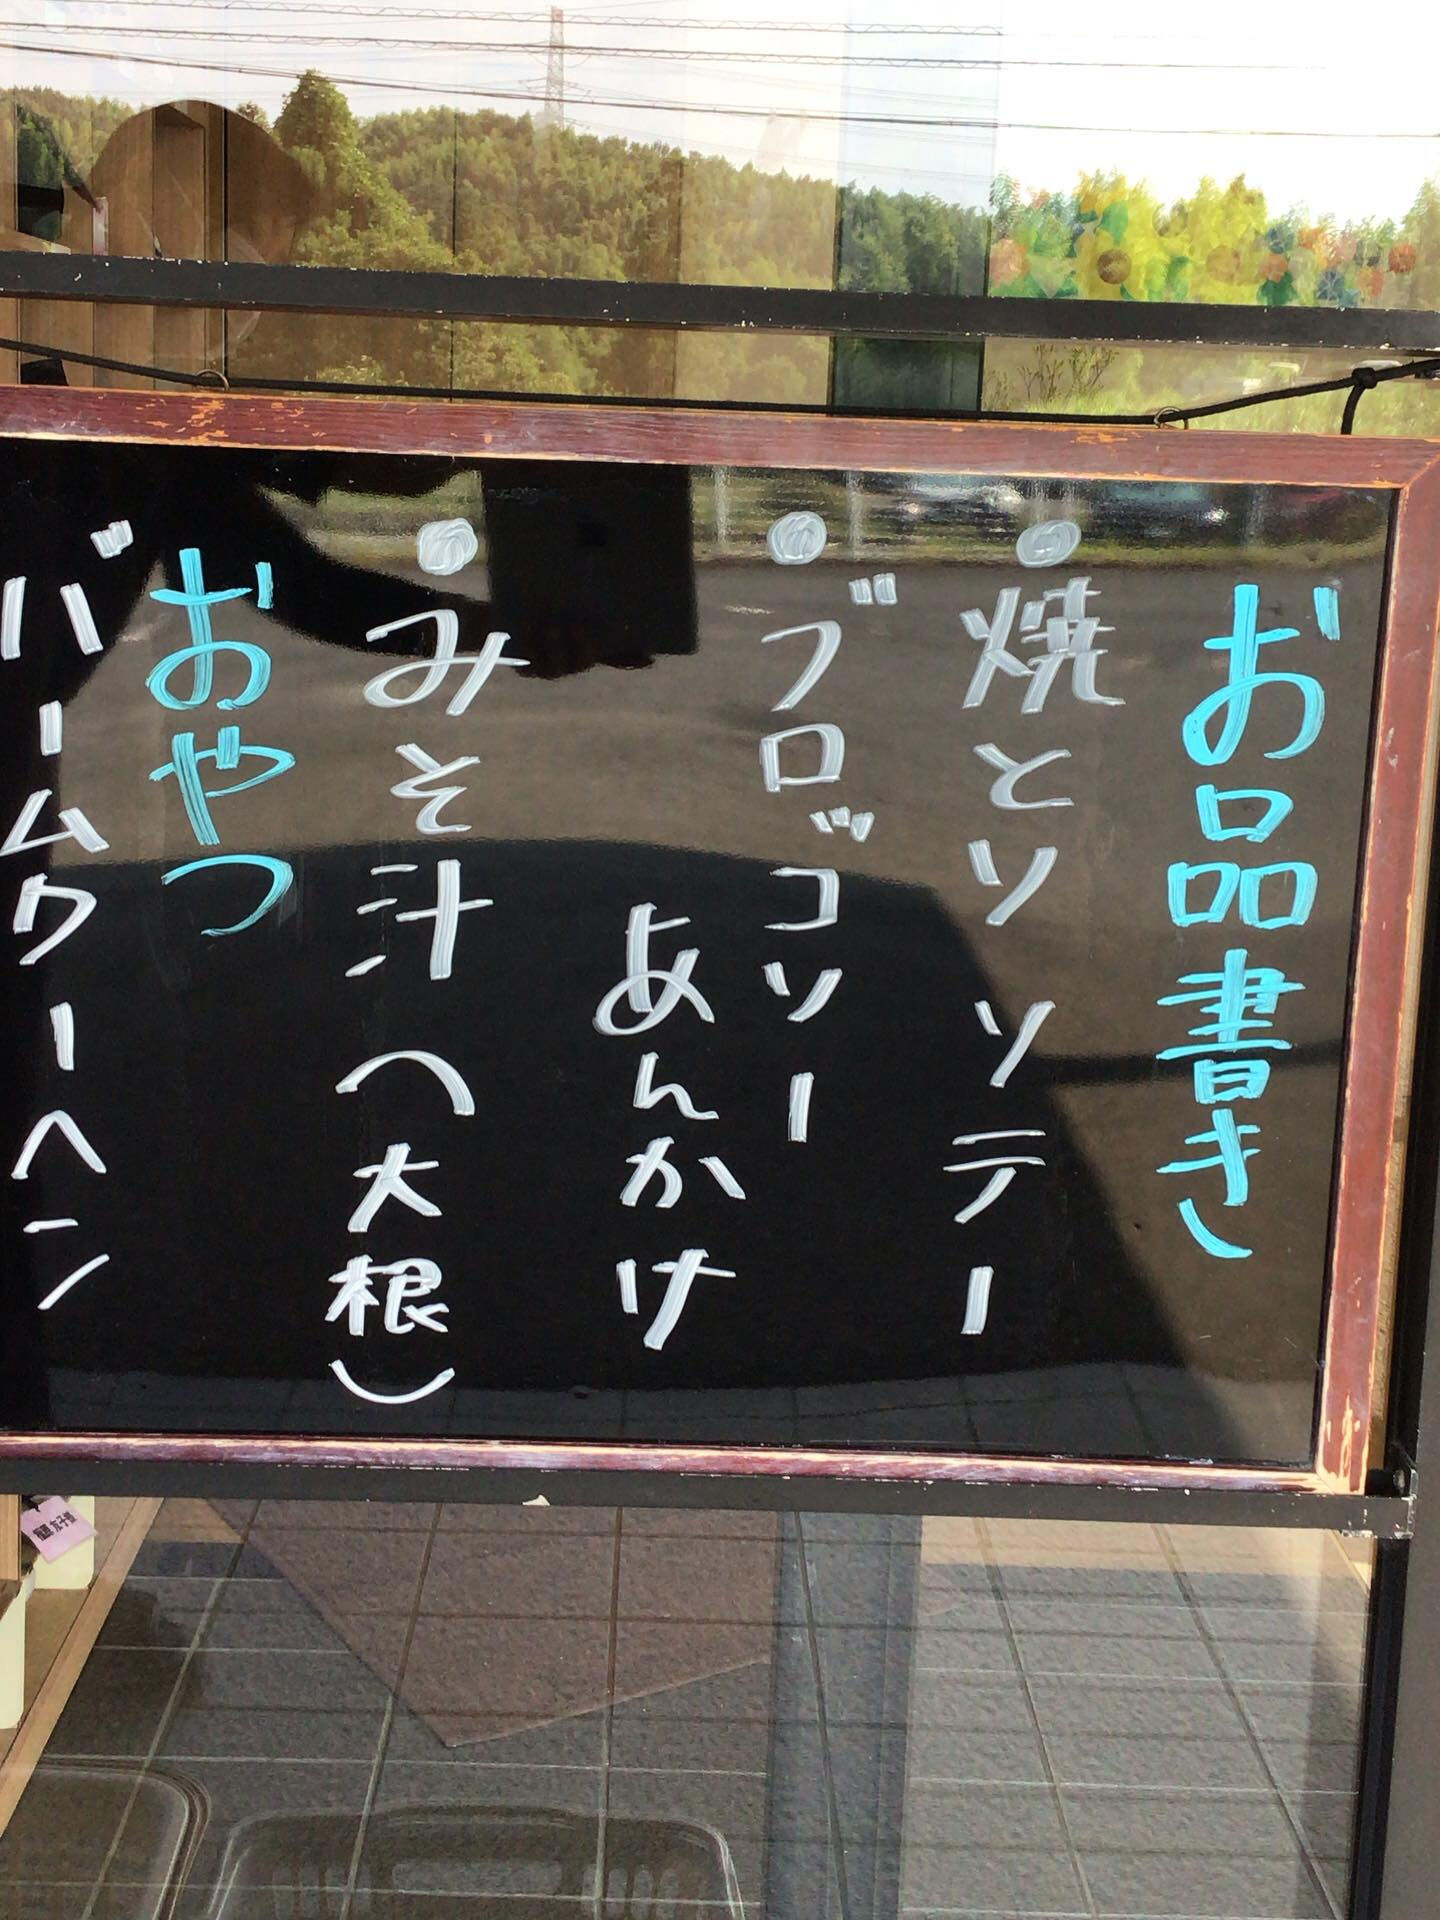 お品書き
●焼とり ソテー
●ブロッコリー
あんかけ
●みそ汁（大根）
おやつ
バームクーヘン